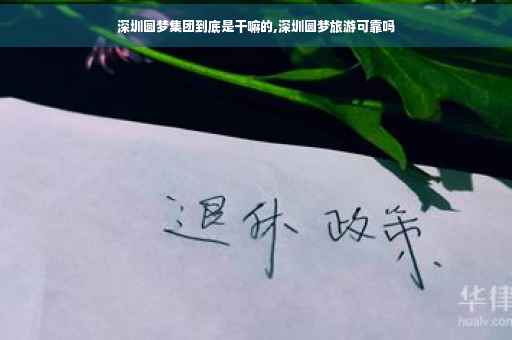 深圳圆梦集团到底是干嘛的,深圳圆梦旅游可靠吗
退休 政策
华律
hualv.com